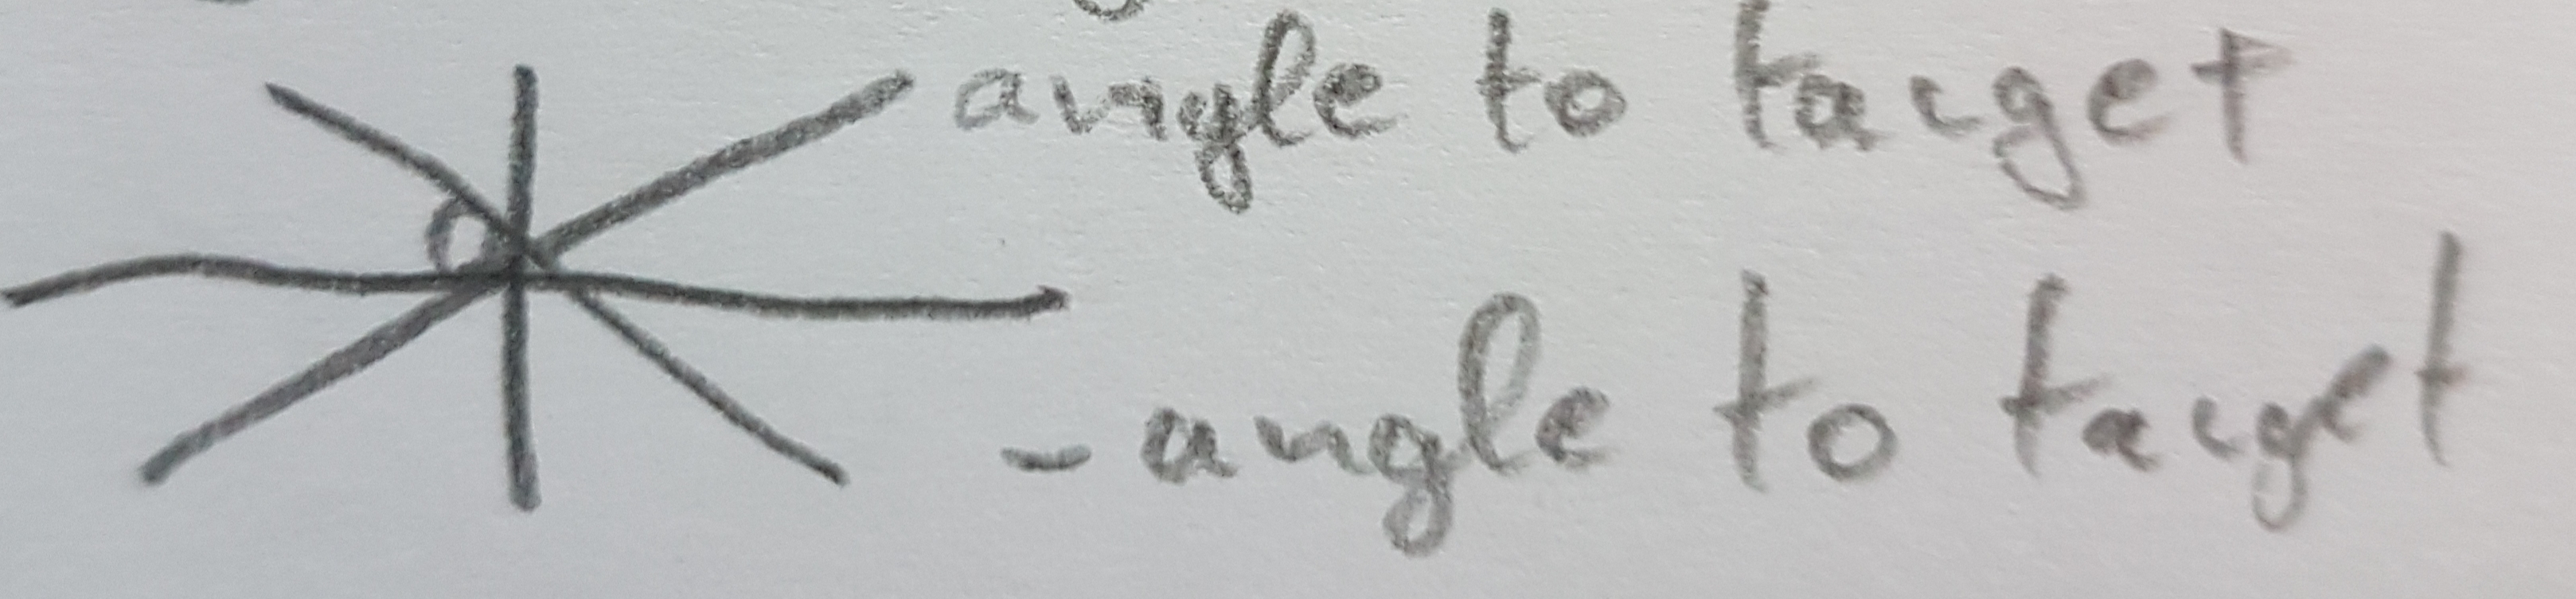 angle to target
-angle to target